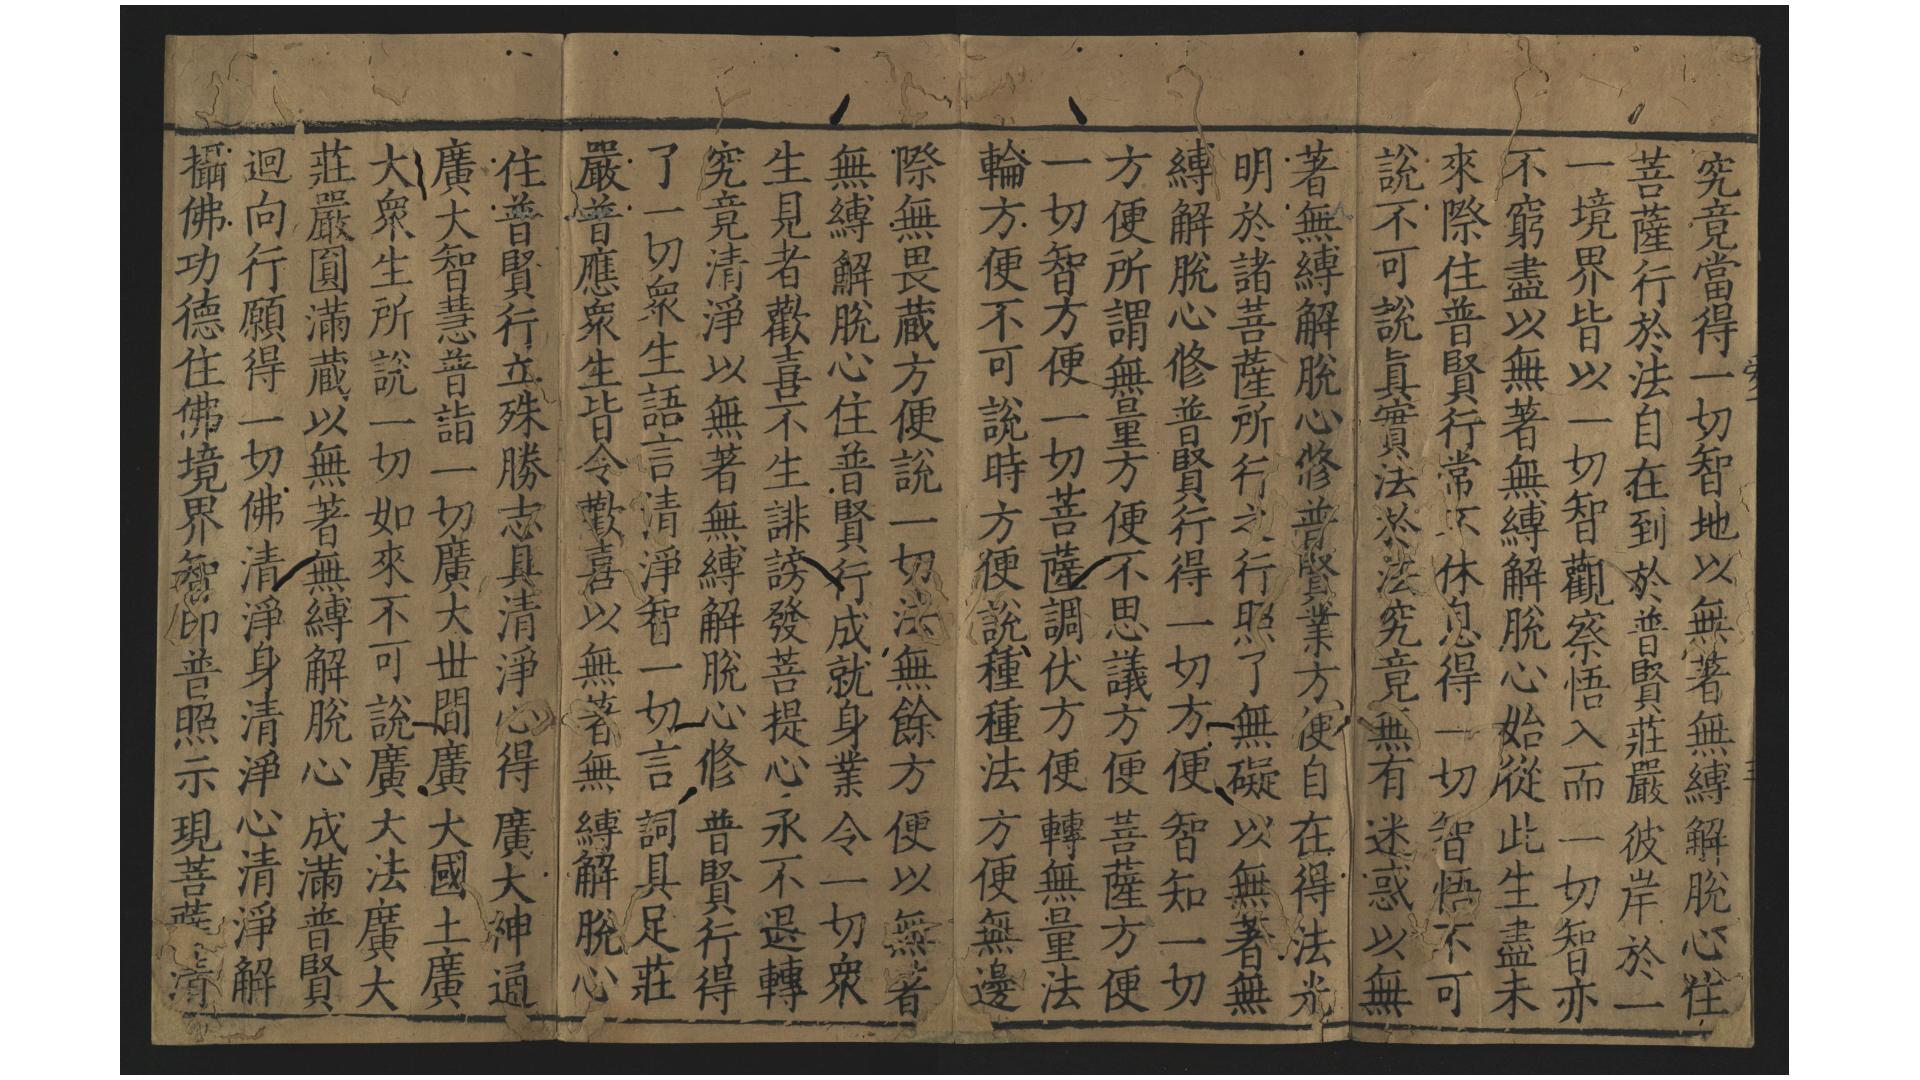 究竟當得一切智地以無著無縛解脫心住
菩薩行於法自在到於普賢莊嚴彼岸於一
一境界皆以一切智觀察悟入而一切智亦
不窮盡以無著無縛解脫心始從此生盡未
來際住普賢行常不休息得一切智悟不可
說不可說眞實法於法究竟無有迷惑以無
著無縛解脫心修普賢業方便自在得法光
明於諸菩薩所行之行照了無礙以無著無
縛解脫心修普賢行得一切方便智知一切
方便所謂無量方便不思議方便菩薩方便
一切智方便一切菩薩調伏方便轉無量法
輪方便不可說時方便說種種法方便無邊
際無畏藏方便說一切法無餘方便以無著
無縛解脫心住普賢行成就身業令一切衆
生見者歡喜不生誹謗發菩提心永不退轉
究竟清淨以無著無縛解脫心修普賢行得
了一切衆生語言清淨智一切言詞具足莊
嚴普應衆生皆令歡喜以無著無縛解脫心
住普賢行立殊勝志具清淨心得廣大神通
廣大智慧普詣一切廣大世間廣大國土廣
大衆生所說一切如來不可說廣大法廣大
莊嚴圓滿藏以無著無縛解脫心成滿普賢
迴向行願得一切佛清淨身清淨心清淨解
攝佛功德住佛境界智印普照示現菩薩清